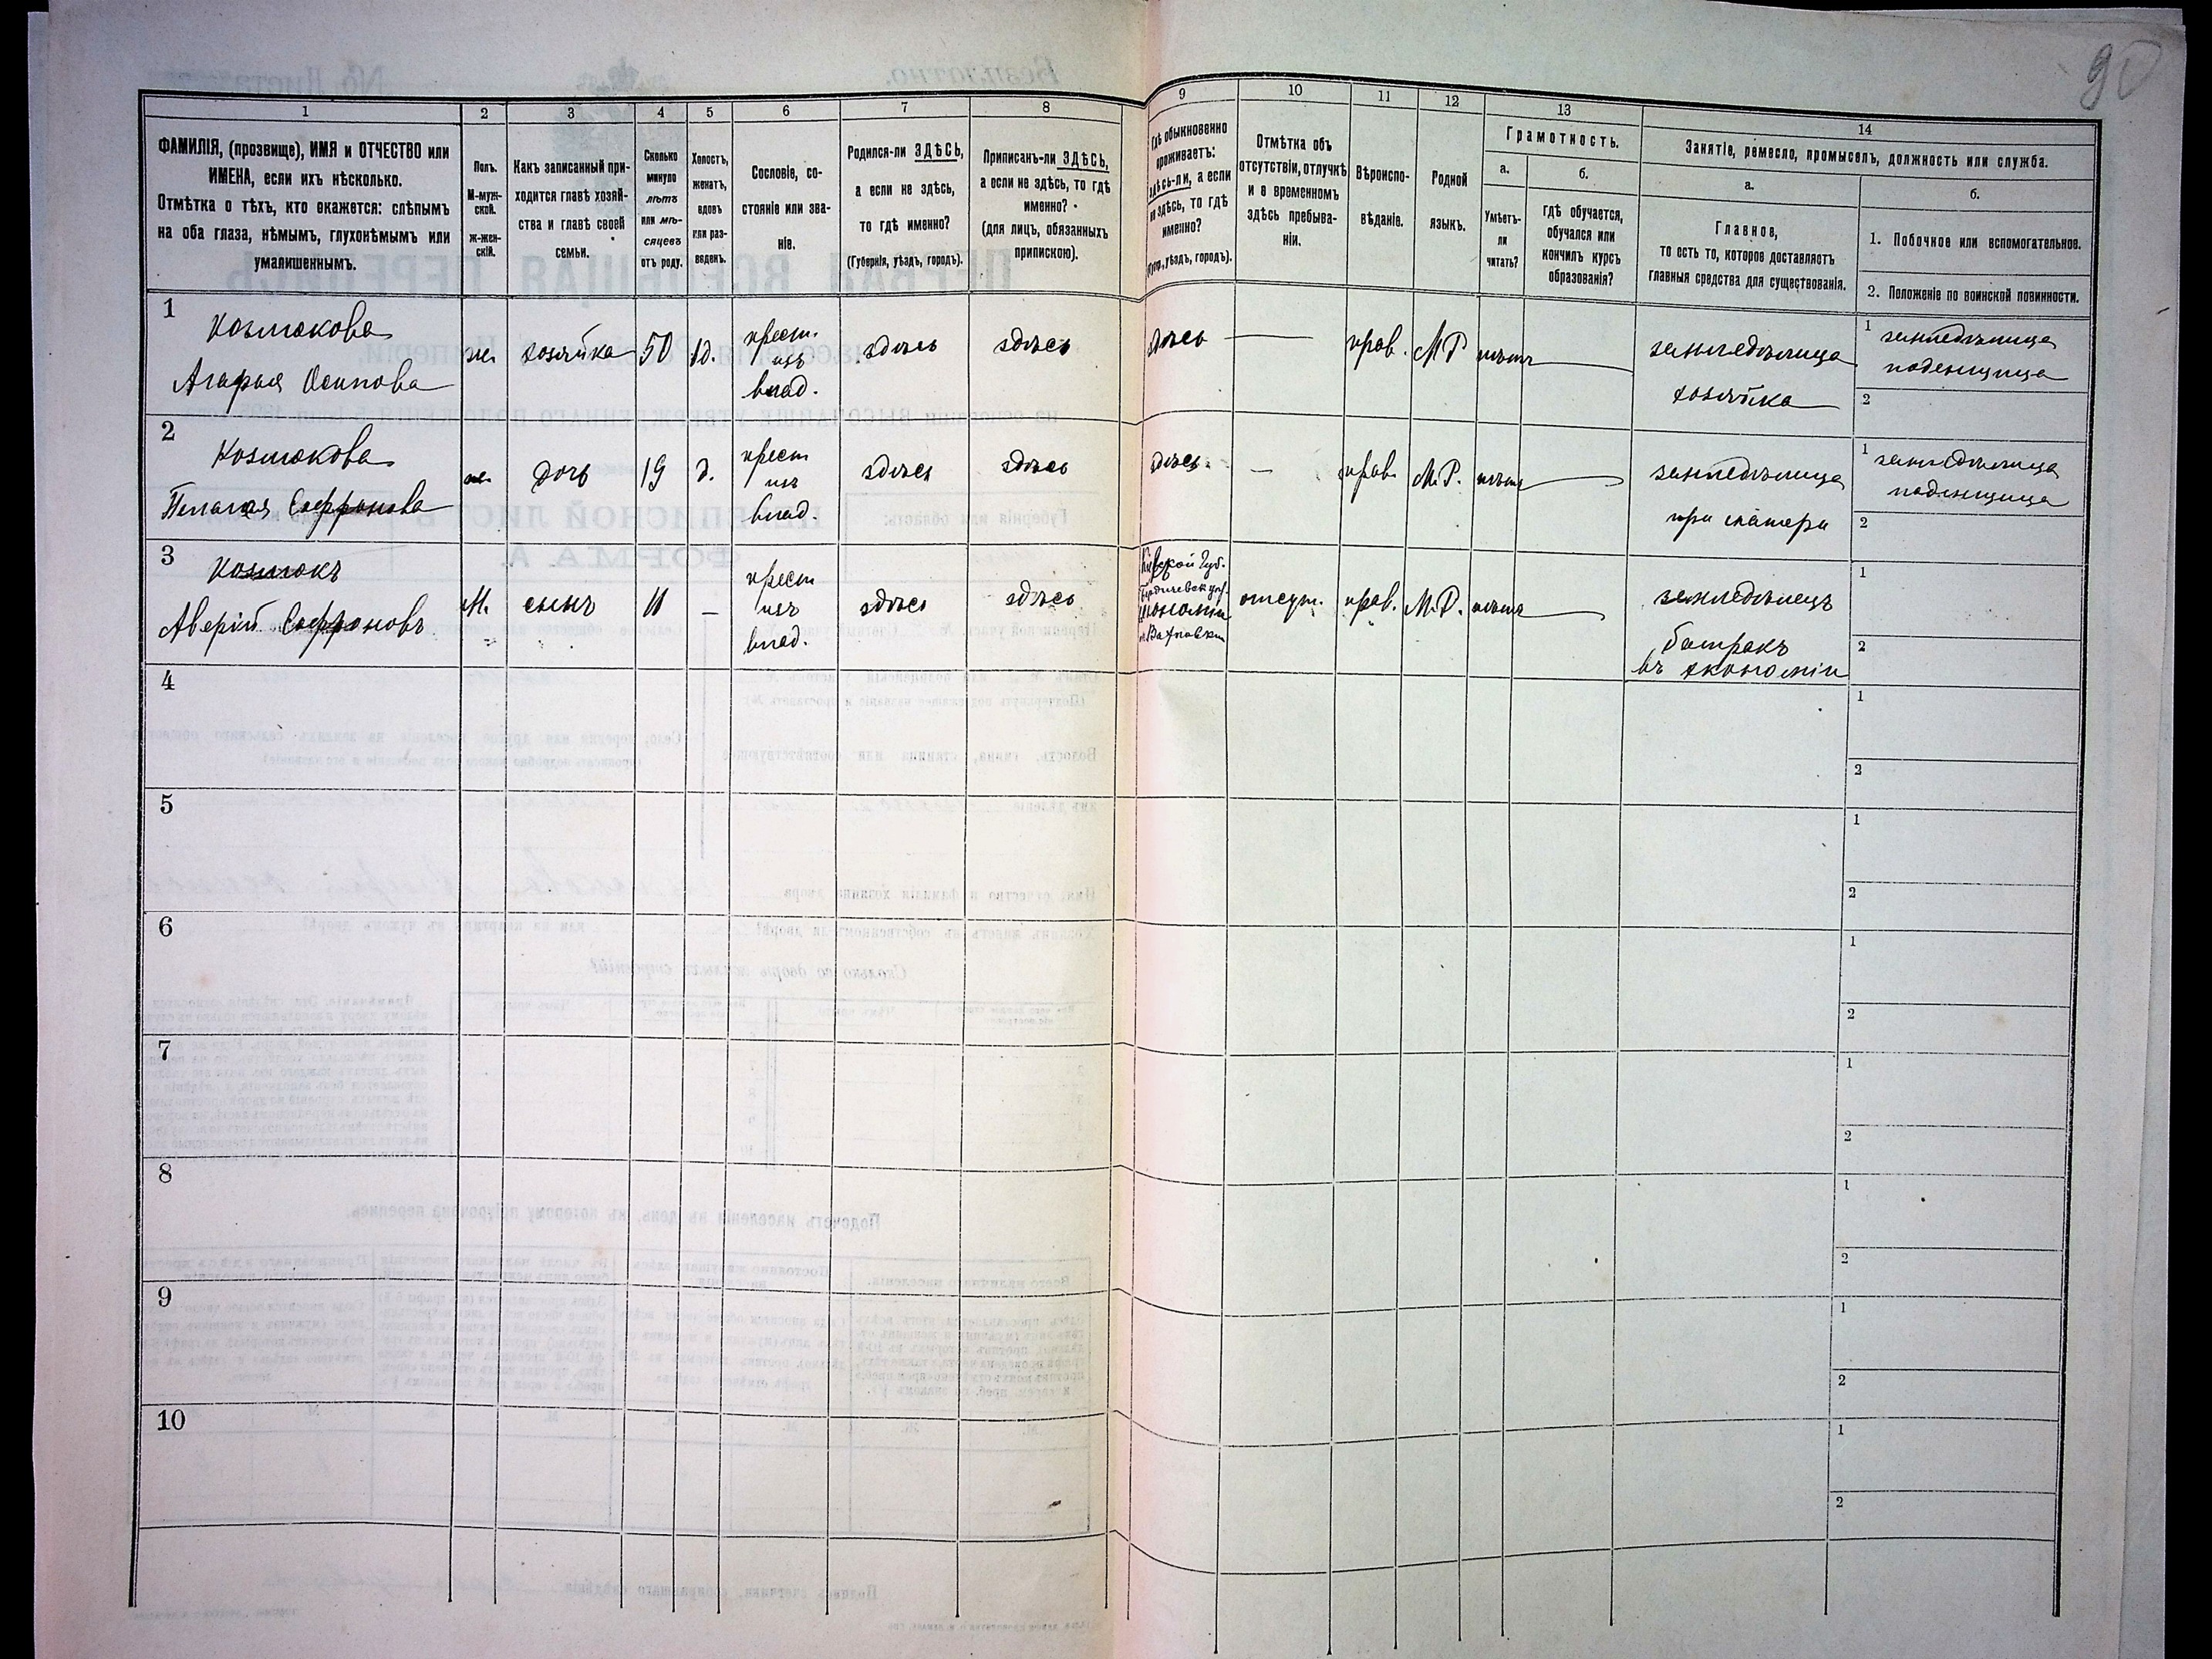 90
1
2
3
4
5
6
7
8
9
10
11
12
13
14
ФАМИЛІЯ, (прозвище), ИМЯ и ОТЧЕСТВО или
ИМЕНА, если ихъ нѣсколько.
Отмѣтка о тѣхъ, кто окажется: слѣпымъ
на оба глаза, нѣмымъ, глухонѣмымъ или
умалишеннымъ.
Полъ.
М-муж-
ской.
Ж-жен-
скій.
Какъ записанный при-
ходится главѣ хозяй-
ства и главѣ своей
семьи.
Сколько
минуло
лѣтъ
или мѣ-
сяцевъ
отъ роду.
Холостъ,
женатъ,
вдовъ
или раз-
веденъ.
Сословіе, со-
стояніе или зва-
ніе.
Родился-ли ЗДѢСЬ,
а если не здѣсь,
то гдѣ именно?
(Губернія, уѣздъ, городъ).
Приписанъ-ли ЗДѢСЬ,
а если не здѣсь, то гдѣ
именно?
(для лицъ, обязанныхъ
припискою).
Гдѣ обыкновенно
проживаетъ:
здѣсь-ли, а если
не здѣсь, то гдѣ
именно?
(Губер., уѣздъ, городъ).
Отмѣтка объ
отсутствіи, отлучкѣ
и о временномъ
здѣсь пребыва-
ніи.
Вѣроиспо-
вѣданіе.
Родной
языкъ.
Грамотность.
а.
Умѣетъ-
ли
читать?
б.
гдѣ обучается,
обучался или
кончилъ курсъ
образованія?
Занятіе, ремесло, промыселъ, должность или служба.
а.
Главное,
то есть то, которое доставляетъ
главныя средства для существованія.
б.
1. Побочное или вспомогательное.
2. Положеніе по воинской повинности.
1
Козмюкова
Агафья Осипова
ж. хозяйка 50 вд.
крест.
изъ
влад.
здѣсь здѣсь здѣсь — прав. МР нѣтъ
земледѣлица
хозяйка
1 земледѣлица
поденщица
2
2
Козмюкова
Пелагея Софронова
ж. дочь 19 д.
крест
изъ
влад.
здѣсь здѣсь здѣсь — прав. М.Р. нѣтъ
земледѣлица
при матери
1 земледѣлица
поденщица
2
3
Козмюкъ
Аверій Софроновъ
М. сынъ 11 —
крест
изъ
влад.
здѣсь здѣсь
Кіевской Губ.
экономіи
отсут. прав. М.Р. нѣтъ
земледѣлецъ
батракъ
въ экономіи
1
2
4
1
2
5
1
2
6
1
2
7
1
2
8
1
2
9
1
2
10
1
2